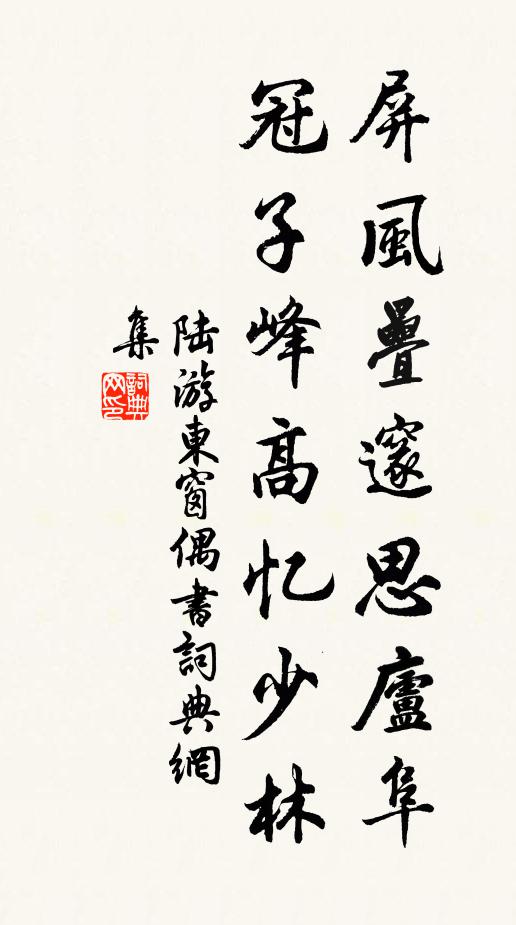 屏風疊邃思廬阜
冠子峰高忆少林
陆游東窗偶書詞典網
集
詞典网印